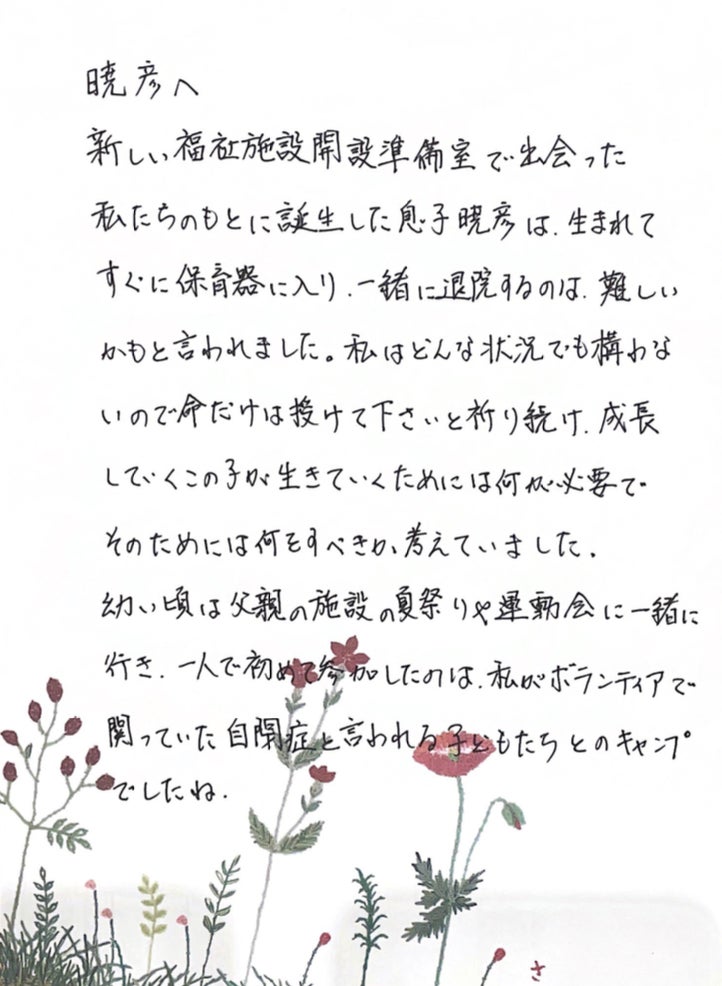 暁彦へ
新しい福祉施設開設準備室で出会った
私たちのもとに誕生した息子暁彦は、生まれて
すぐに保育器に入り、一緒に退院するのは、難しい
かもと言われました。私はどんな状況でも構わな
いので命だけは授けて下さいと祈り続け、成長
していくこの子が生きていくためには何が必要で
そのためには何をすべきか、考えていました。
幼い頃は父親の施設の夏祭りや運動会に一緒に
行き、一人で初めて参加したのは、私がボランティアで
関っていた自閉症と言われる子どもたちとのキャンプ
でしたね。
さ